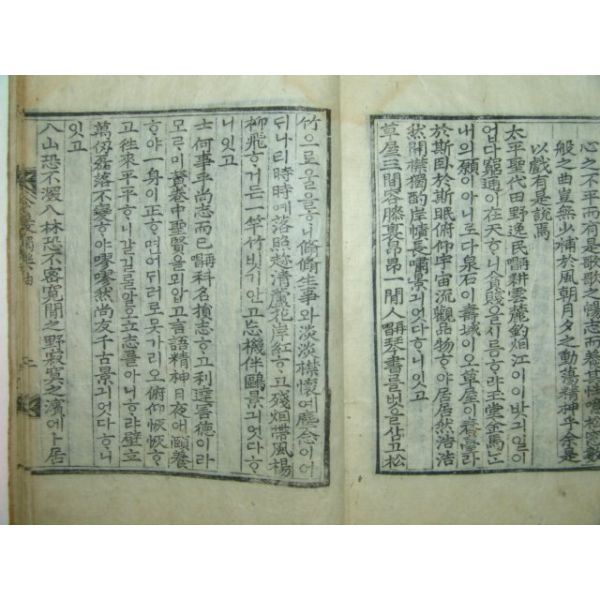 心之不平而有是歌歌之暢志而蕩其情噫松窓數
般之曲豈無少補於風朝月夕之動蕩精神乎余是
以戱有是說焉
太平聖代田野逸民再唱耕雲麓釣烟江이이밧긔일이
업다窮通이在天ᄒᆞ니貧賤을시름ᄒᆞ랴玉堂金馬ᄂᆞᆫ
내의願이아니로다泉石이壽域이오草屋이春臺라
於斯臥於斯眠俯仰宇宙流觀品物ᄒᆞ야居居然浩浩
然開襟獨酌岸幘長嘯景긔엇다ᄒᆞ니잇고
草屋三間容膝裏昻昻一閒人再唱琴書를벗을삼고松
竹으로울을ᄒᆞ니翛翛生事와淡淡襟懷예塵念이어
듸나리時時예落照趂淸蘆花岸紅ᄒᆞ고殘烟帶風楊
柳飛ᄒᆞ거든一竿竹빗기안고忘機伴鷗景긔엇다ᄒᆞ
니잇고
士何事乎尙志而已再唱科名損志ᄒᆞ고利達害德이라
모ᄅᆞ미黃卷中聖賢을뫼압고言語精神日夜애頤養
ᄒᆞ야一身이正ᄒᆞ면어듸러로못가리오俯仰恢恢ᄒᆞ
고往來平平ᄒᆞ니갈길ᄅᆞᆯ알오立志를아니ᄒᆞ랴壁立
萬仞磊落不變ᄒᆞ야嘐嘐然尙友千古景긔엇다ᄒᆞ니
잇고
入山恐不深入林恐不密寬閒之野寂寞之濱에卜居